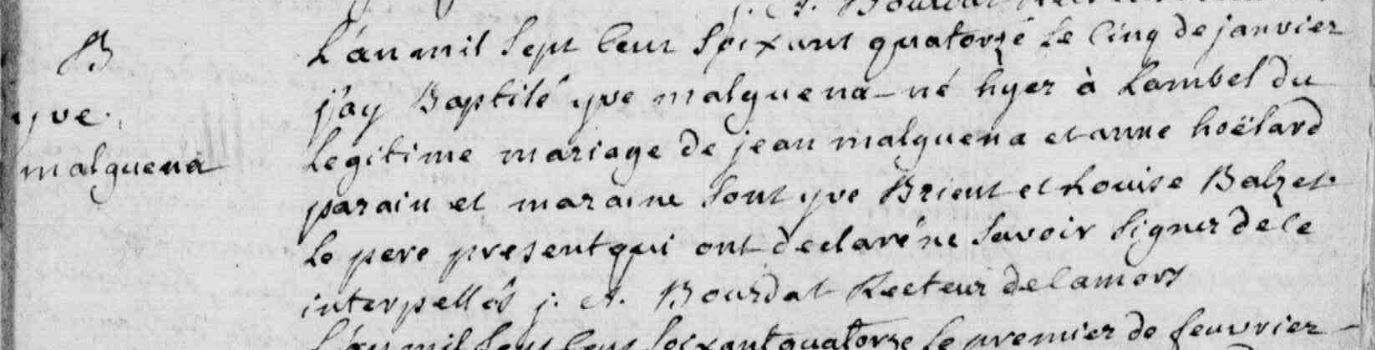 B
yve
malguena
L'an mil Sept Cent Soixant quatorze Le Cinq de janvier
j'ay Baptisé yve malguena né hyer à Lambel du
Legitime mariage de jean malguena et anne hoëlard
parain et maraine Sont yve Brient et Louise Balzet
Le pere present qui ont declaré ne Savoir Signer de Ce
interpellés j. A. Bourdat Recteur de Camors
L'an mil Sept Cent Soixant quatorze Le premier de feuvrier